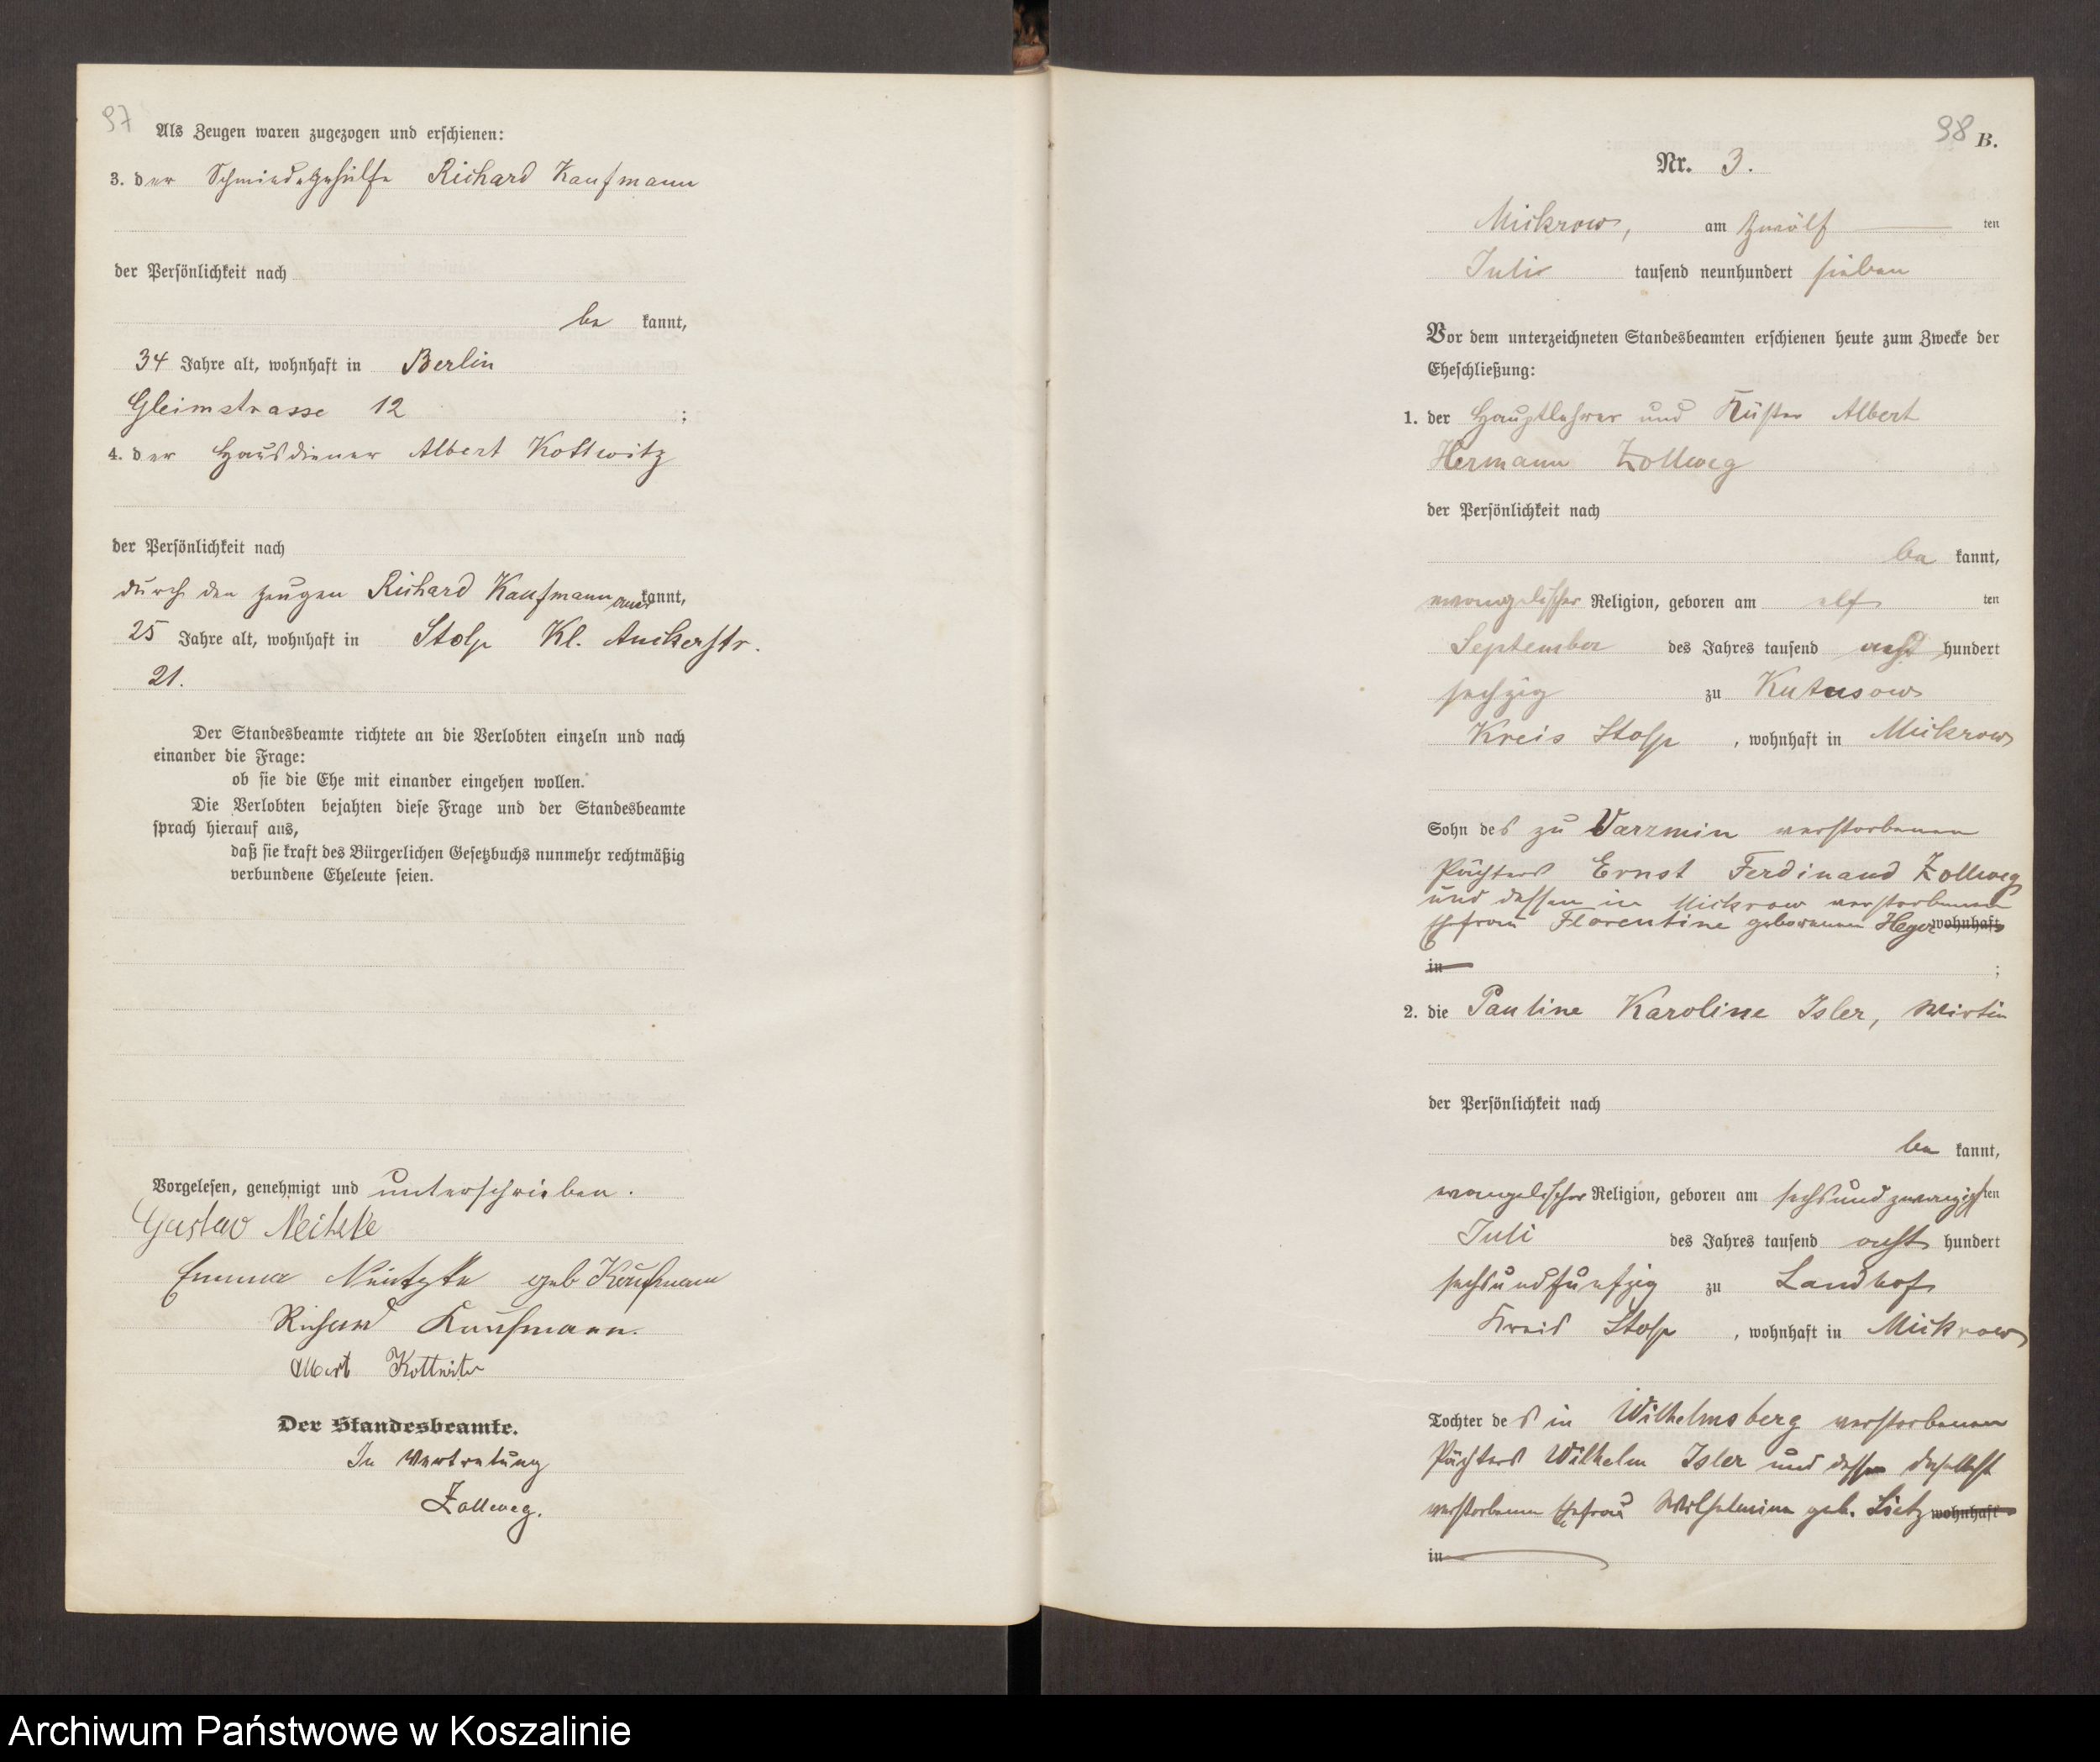 97
Als Zeugen waren zugezogen und erschienen:
3. der Schmiedegehülfe Richard Kaufmann
der Persönlichkeit nach
be kannt,
34 Jahre alt, wohnhaft in Berlin
Gleimstrasse 12 ;
4. der Hausdiener Albert Kottwitz
der Persönlichkeit nach
durch den Zeugen Richard Kaufmann aner kannt,
25 Jahre alt, wohnhaft in Stolp Kl. Auckerstr.
21.
Der Standesbeamte richtete an die Verlobten einzeln und nach
einander die Frage:
ob sie die Ehe mit einander eingehen wollen.
Die Verlobten bejahten diese Frage und der Standesbeamte
sprach hierauf aus,
daß sie kraft des Bürgerlichen Gesetzbuchs nunmehr rechtmäßig
verbundene Eheleute seien.
Vorgelesen, genehmigt und unterschrieben.
Gustav Neitzke
Emma Neitzke geb Kaufmann
Richard Kaufmann.
Albert Kottwitz
Der Standesbeamte.
In Vertretung
Zollweg.
98 B.
Nr. 3.
Mickrow, am zwölf ten
Juli tausend neunhundert sieben
Vor dem unterzeichneten Standesbeamten erschienen heute zum Zwecke der
Eheschließung:
1. der Hauptlehrer und Küster Albert
Hermann Zollweg
der Persönlichkeit nach
be kannt,
evangelischer Religion, geboren am elf ten
September des Jahres tausend acht hundert
sechzig zu Kutusow
Kreis Stolp, wohnhaft in Mickrow
Sohn des zu Varzmin verstorbenen
Pächters Ernst Ferdinand Zollweg
und dessen in Mickrow verstorbenen
Ehefrau Florentine geborenen Heger wohnhaft
in ;
2. die Pauline Karoline Isler, Wirtin
der Persönlichkeit nach
be kannt,
evangelischer Religion, geboren am sechsundzwanzigsten
Juli des Jahres tausend acht hundert
sechsundfünfzig zu Landhof
Kreis Stolp, wohnhaft in Mickrow
Tochter des in Wilhelmsberg verstorbenen
Pächters Wilhelm Isler und dessen daselbst
verstorbenen Ehefrau Wilhelmine geb. Lietz wohnhaft
in
Archiwum Państwowe w Koszalinie